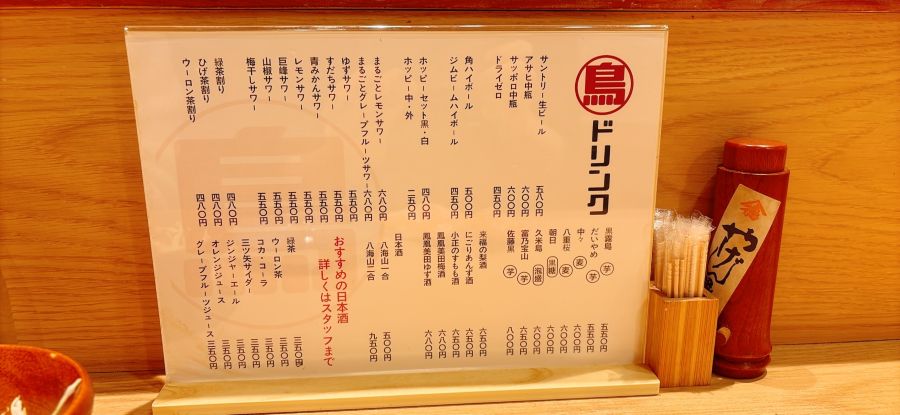 鳥
ドリンク
サントリー生ビール 五八〇円
アサヒ中瓶 六〇〇円
サッポロ中瓶 六〇〇円
ドライゼロ 四五〇円
角ハイボール 五〇〇円
ジムビームハイボール 四五〇円
ホッピーセット黒・白 四八〇円
ホッピー中・外 二五〇円
まるごとレモンサワー 六八〇円
まるごとグレープフルーツサワー 六八〇円
ゆずサワー 五五〇円
すだちサワー 五五〇円
青みかんサワー 五五〇円
レモンサワー 五五〇円
巨峰サワー 五五〇円
山椒サワー 五五〇円
梅干しサワー 五五〇円
緑茶割り 四八〇円
ひげ茶割り 四八〇円
ウーロン茶割り 四八〇円
黒霧島 芋 五五〇円
だいやめ 芋 五五〇円
中々 麦 六〇〇円
八重桜 麦 六〇〇円
朝日 黒糖 六〇〇円
久米島 泡盛 六〇〇円
富乃宝山 芋 六五〇円
佐藤黒 芋 八〇〇円
来福の梨酒 六五〇円
にごりあんず酒 六五〇円
小正のすもも酒 六五〇円
鳳凰美田梅酒 六八〇円
鳳凰美田ゆず酒 六八〇円
日本酒
八海山一合 五〇〇円
八海山二合 九五〇円
おすすめの日本酒
詳しくはスタッフまで
緑茶 三五〇円
ウーロン茶 三五〇円
コカ・コーラ 三五〇円
三ツ矢サイダー 三五〇円
ジンジャーエール 三五〇円
オレンジジュース 三五〇円
グレープフルーツジュース 三五〇円
鳥
やげん